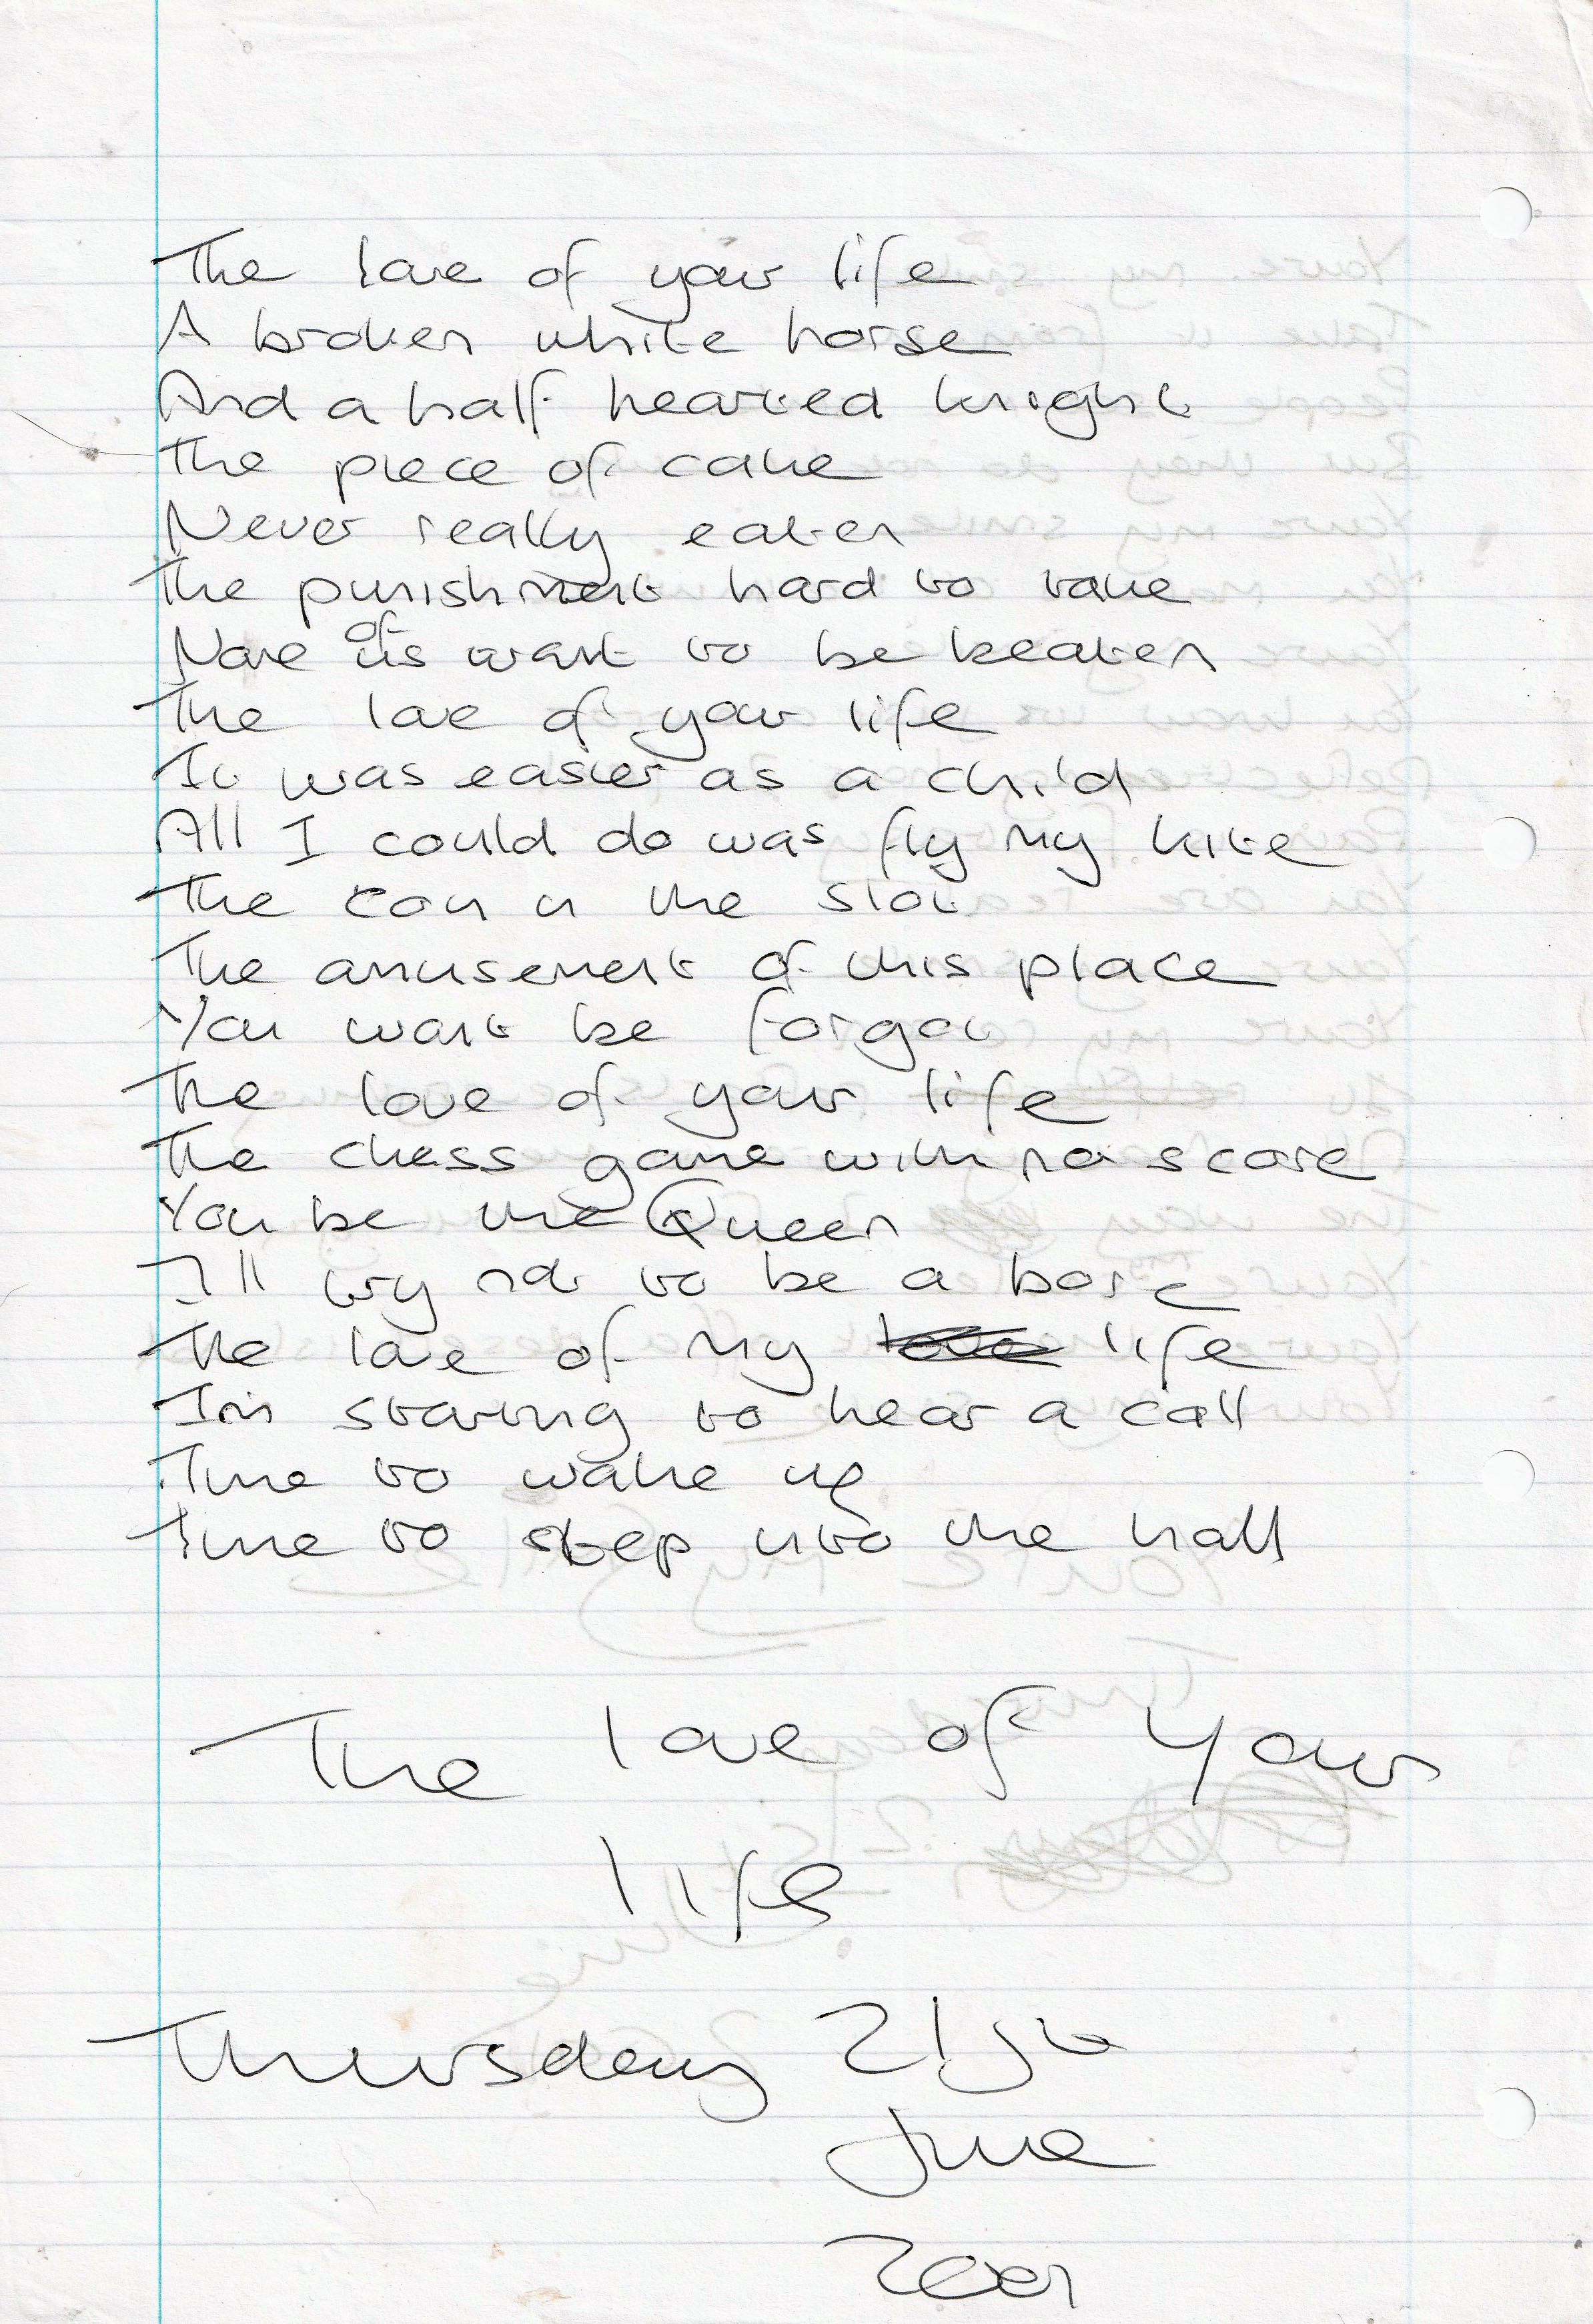 The love of your life
A broken white horse
And a half hearted knight
The piece of cake
Never really eaten
The punishment hard to take
None of us want to be beaten
The love of your life
It was easier as a child
All I could do was fly my kite
The coin in the slot
The amusement of this place
You wont be forgot
The love of your life
The chess game with no score
You be the Queen
I'll try not to be a bore
The love of my life
I'm starting to hear a call
Time to wake up
Time to step into the hall
The love of your
life
Thursday 21st
June
2001